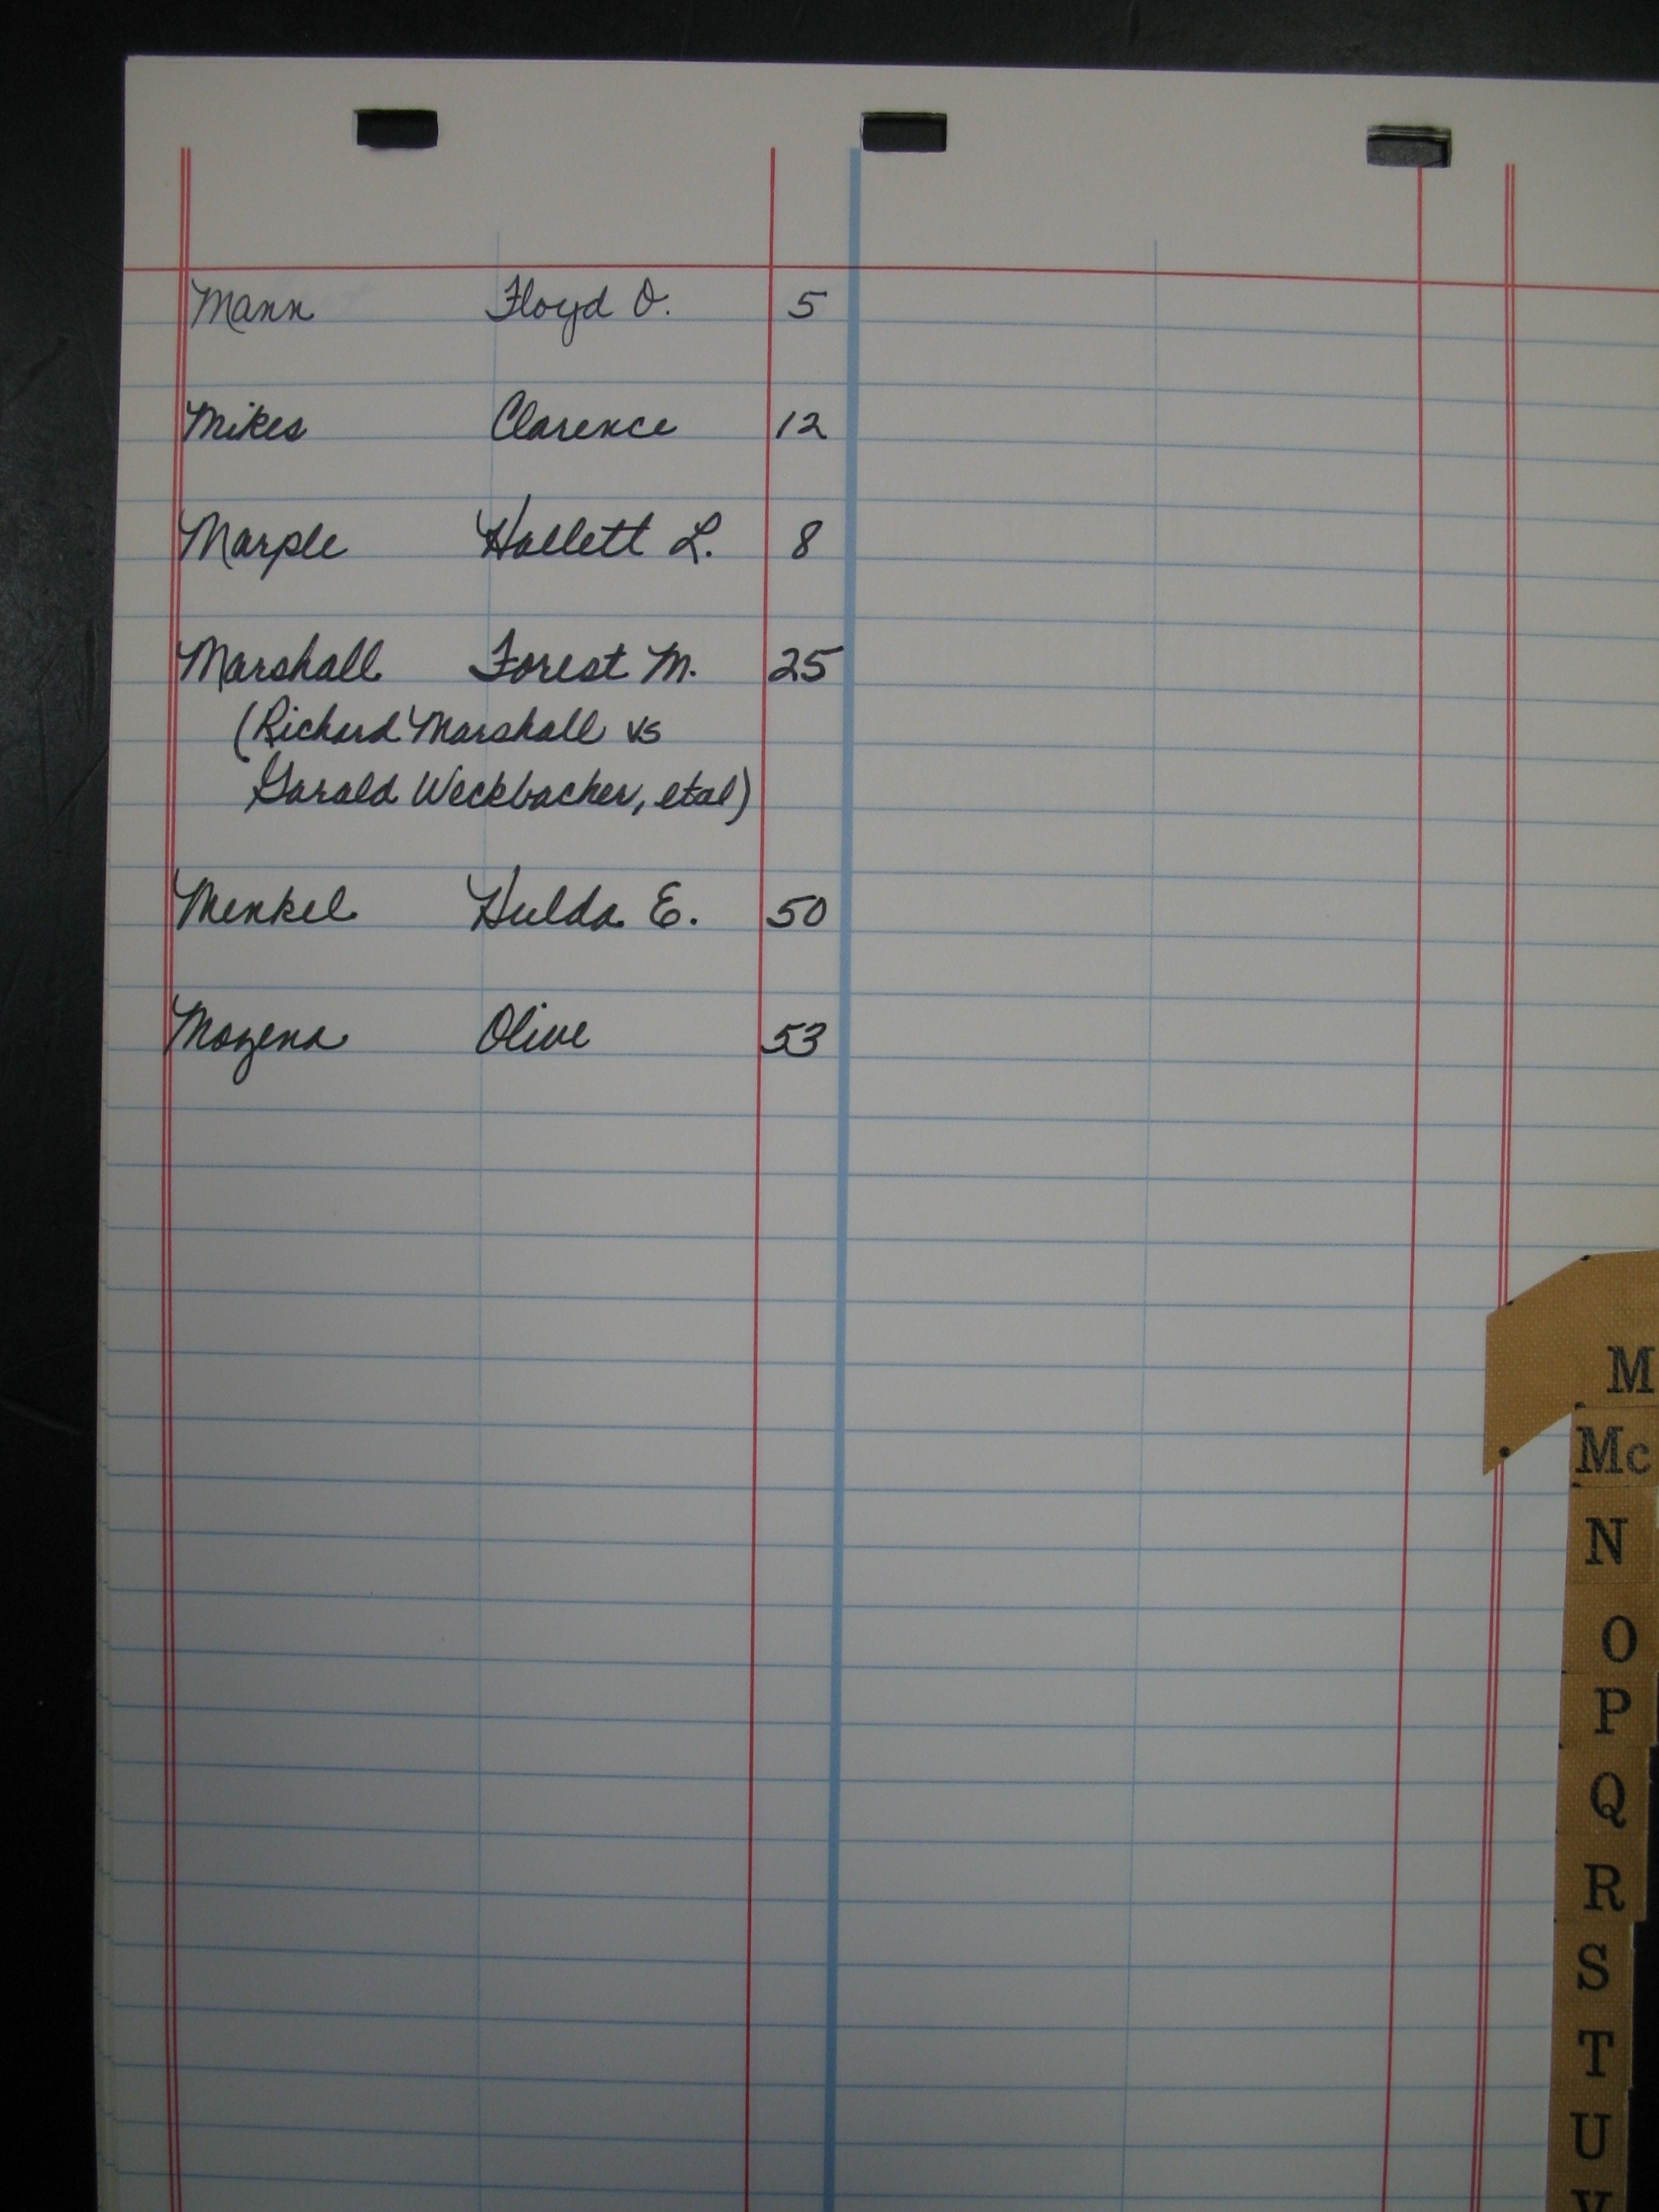 Mann Floyd O. 5
Mikes Clarence 12
Marple Hallett L. 8
Marshall Forest M. 25
(Richard Marshall vs
Garald Weckbacher, etal)
Menkel Hulda E. 50
Mozena Olive 53
M
Mc
N
O
P
Q
R
S
T
U
V